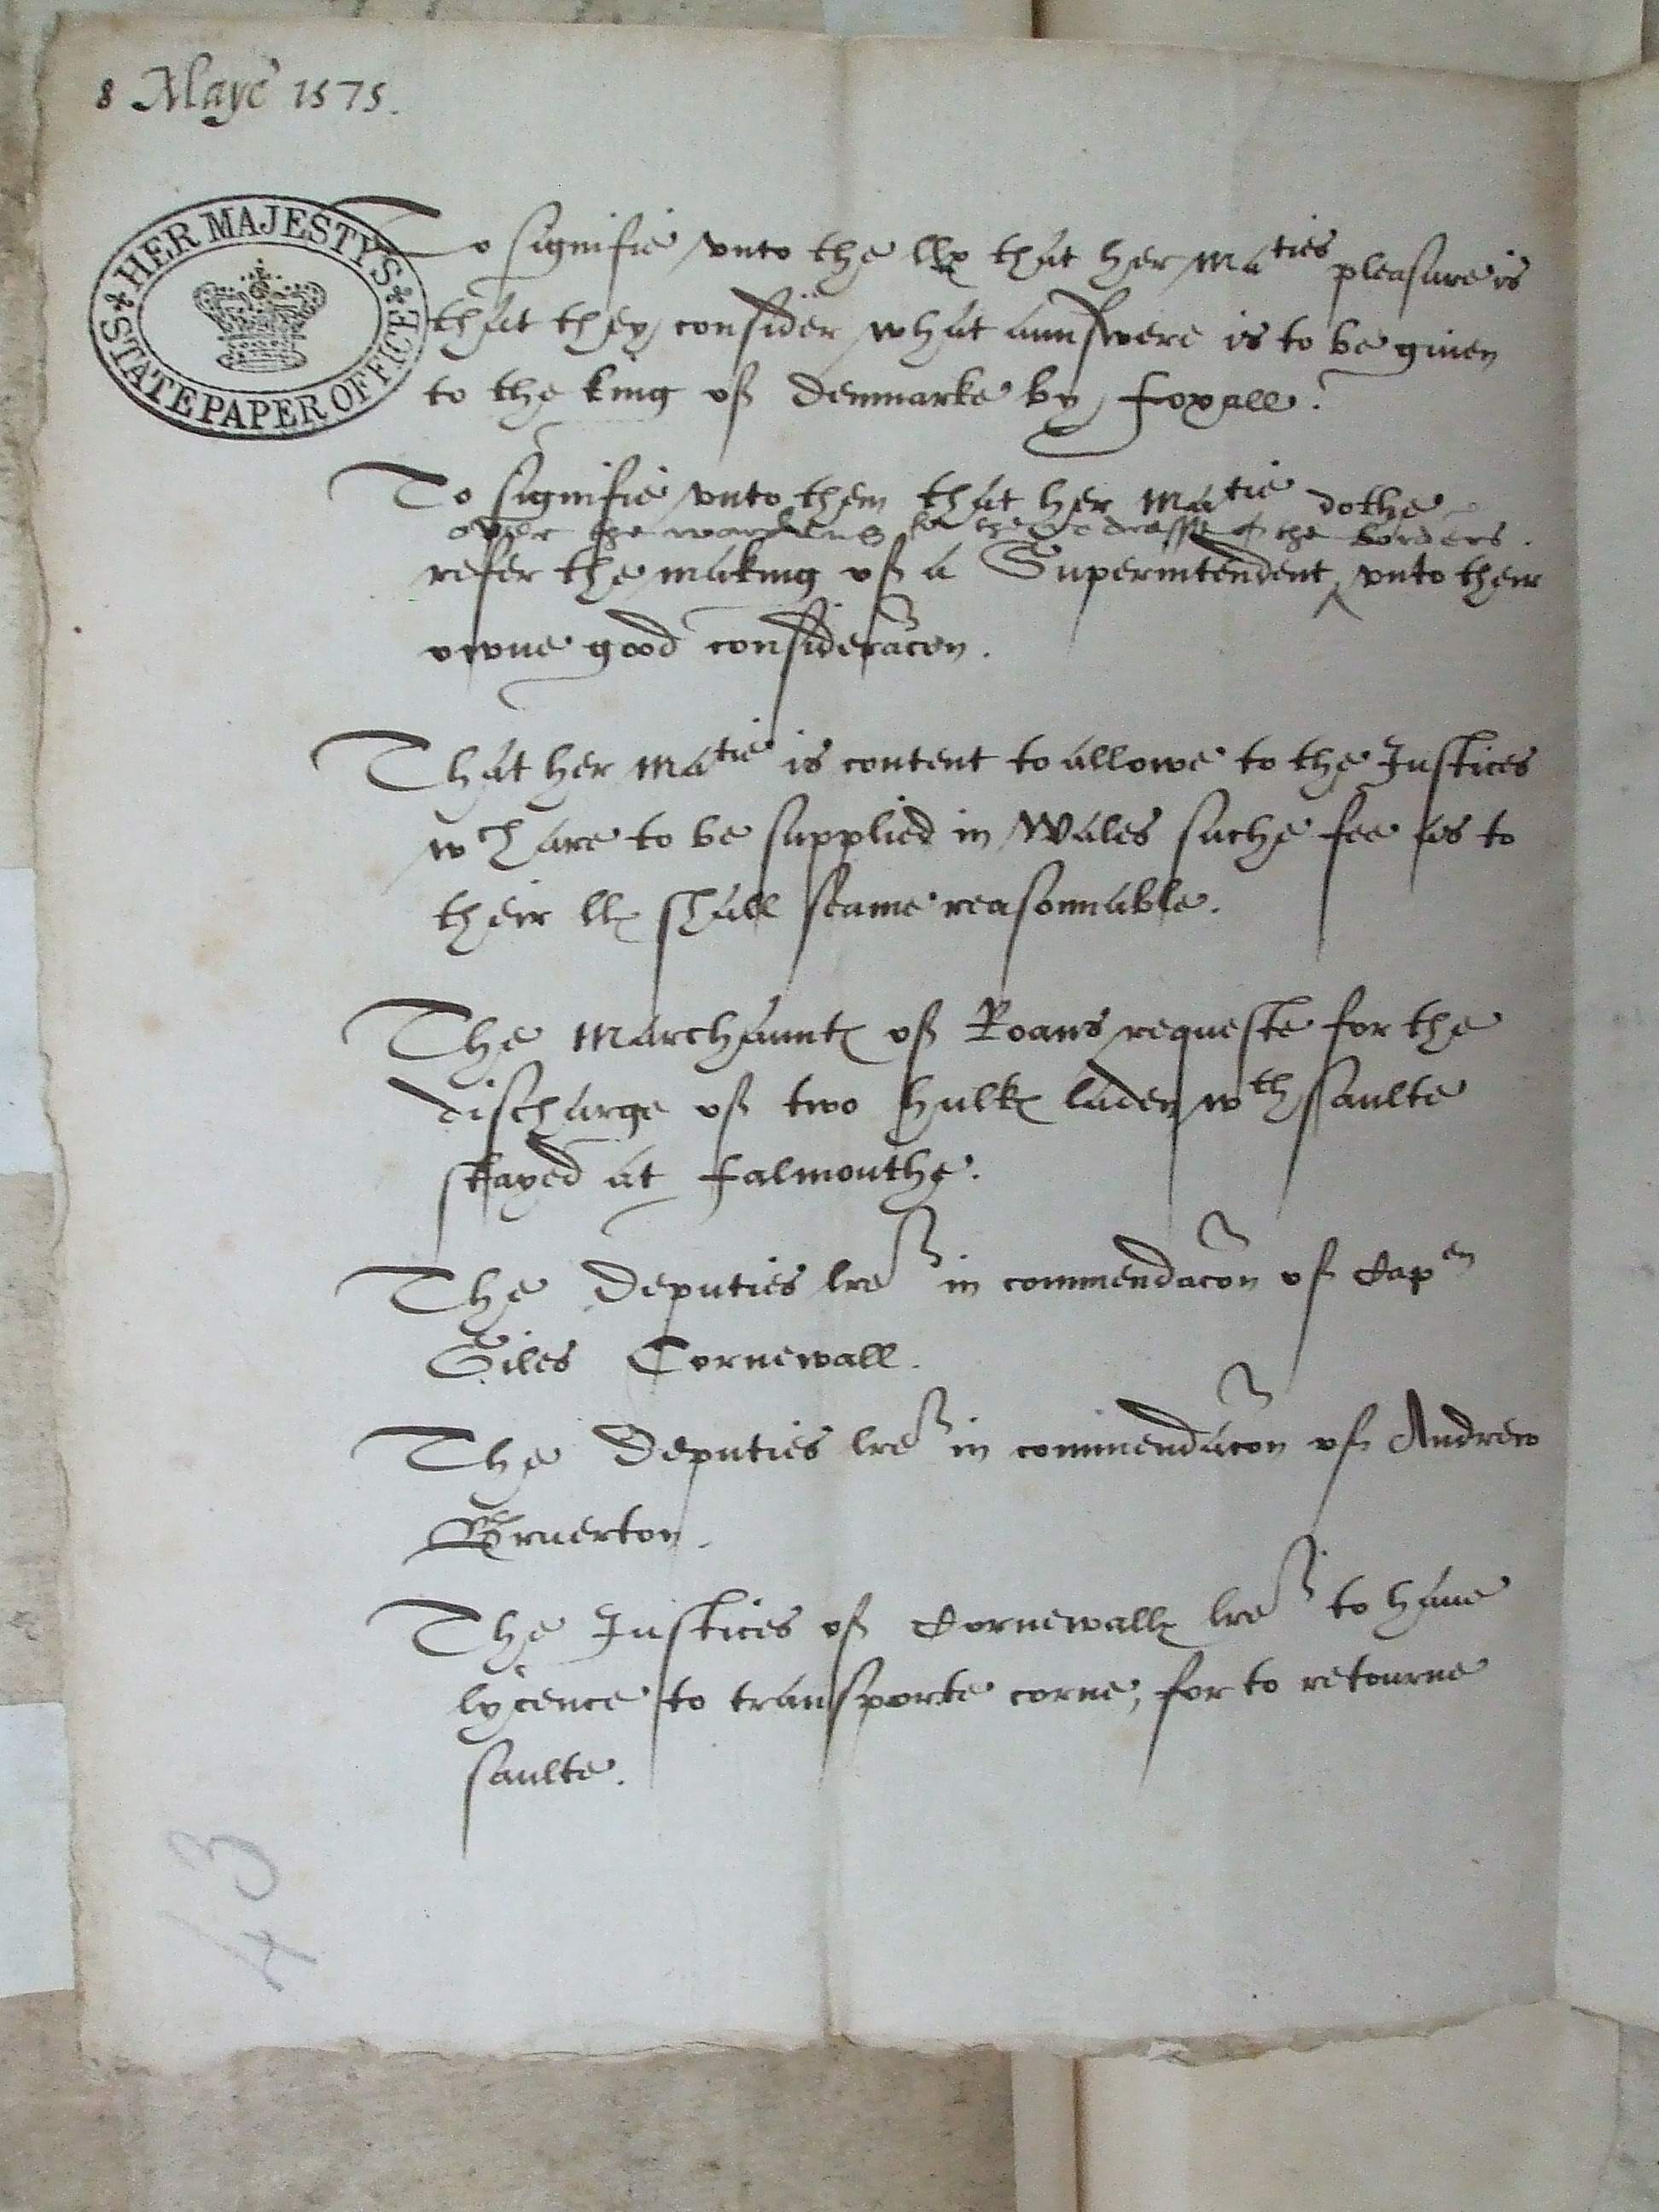 8 Maye 1575.
HER MAJESTY'S STATE PAPER OFFICE
To signifie vnto the llp that her maties pleasure is
that they consider what aunswere is to be giuen
to the king of Denmarke by Foxall.
To signifie vnto them that her matie dothe
over the wardens for the redresse of the borders.
refer the making of a Superintendent ^ vnto their
owne good consideracon.
That her matie is content to allowe to the Justices
wch are to be supplied in Wales suche fee as to
their ll shall seame reasonnable.
The marchauntes of Roans requeste for the
discharge of two hulkes laden wth saulte
stayed at Falmouthe.
The Deputies lres in commendacon of Capen
Giles Cornewall.
The Deputies lres in commendacon of Andrew
Bruerton.
The Justices of Cornewalles lres to haue
lycence to transporte corne, for to retourne
saulte.
43